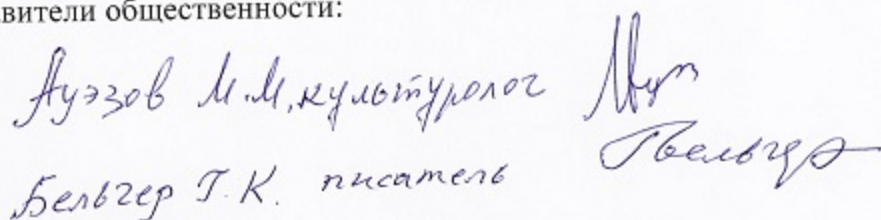 вители общественности:
Ауэзов М.М, культуролог
Бельгер Г.К. писатель Гбельгер